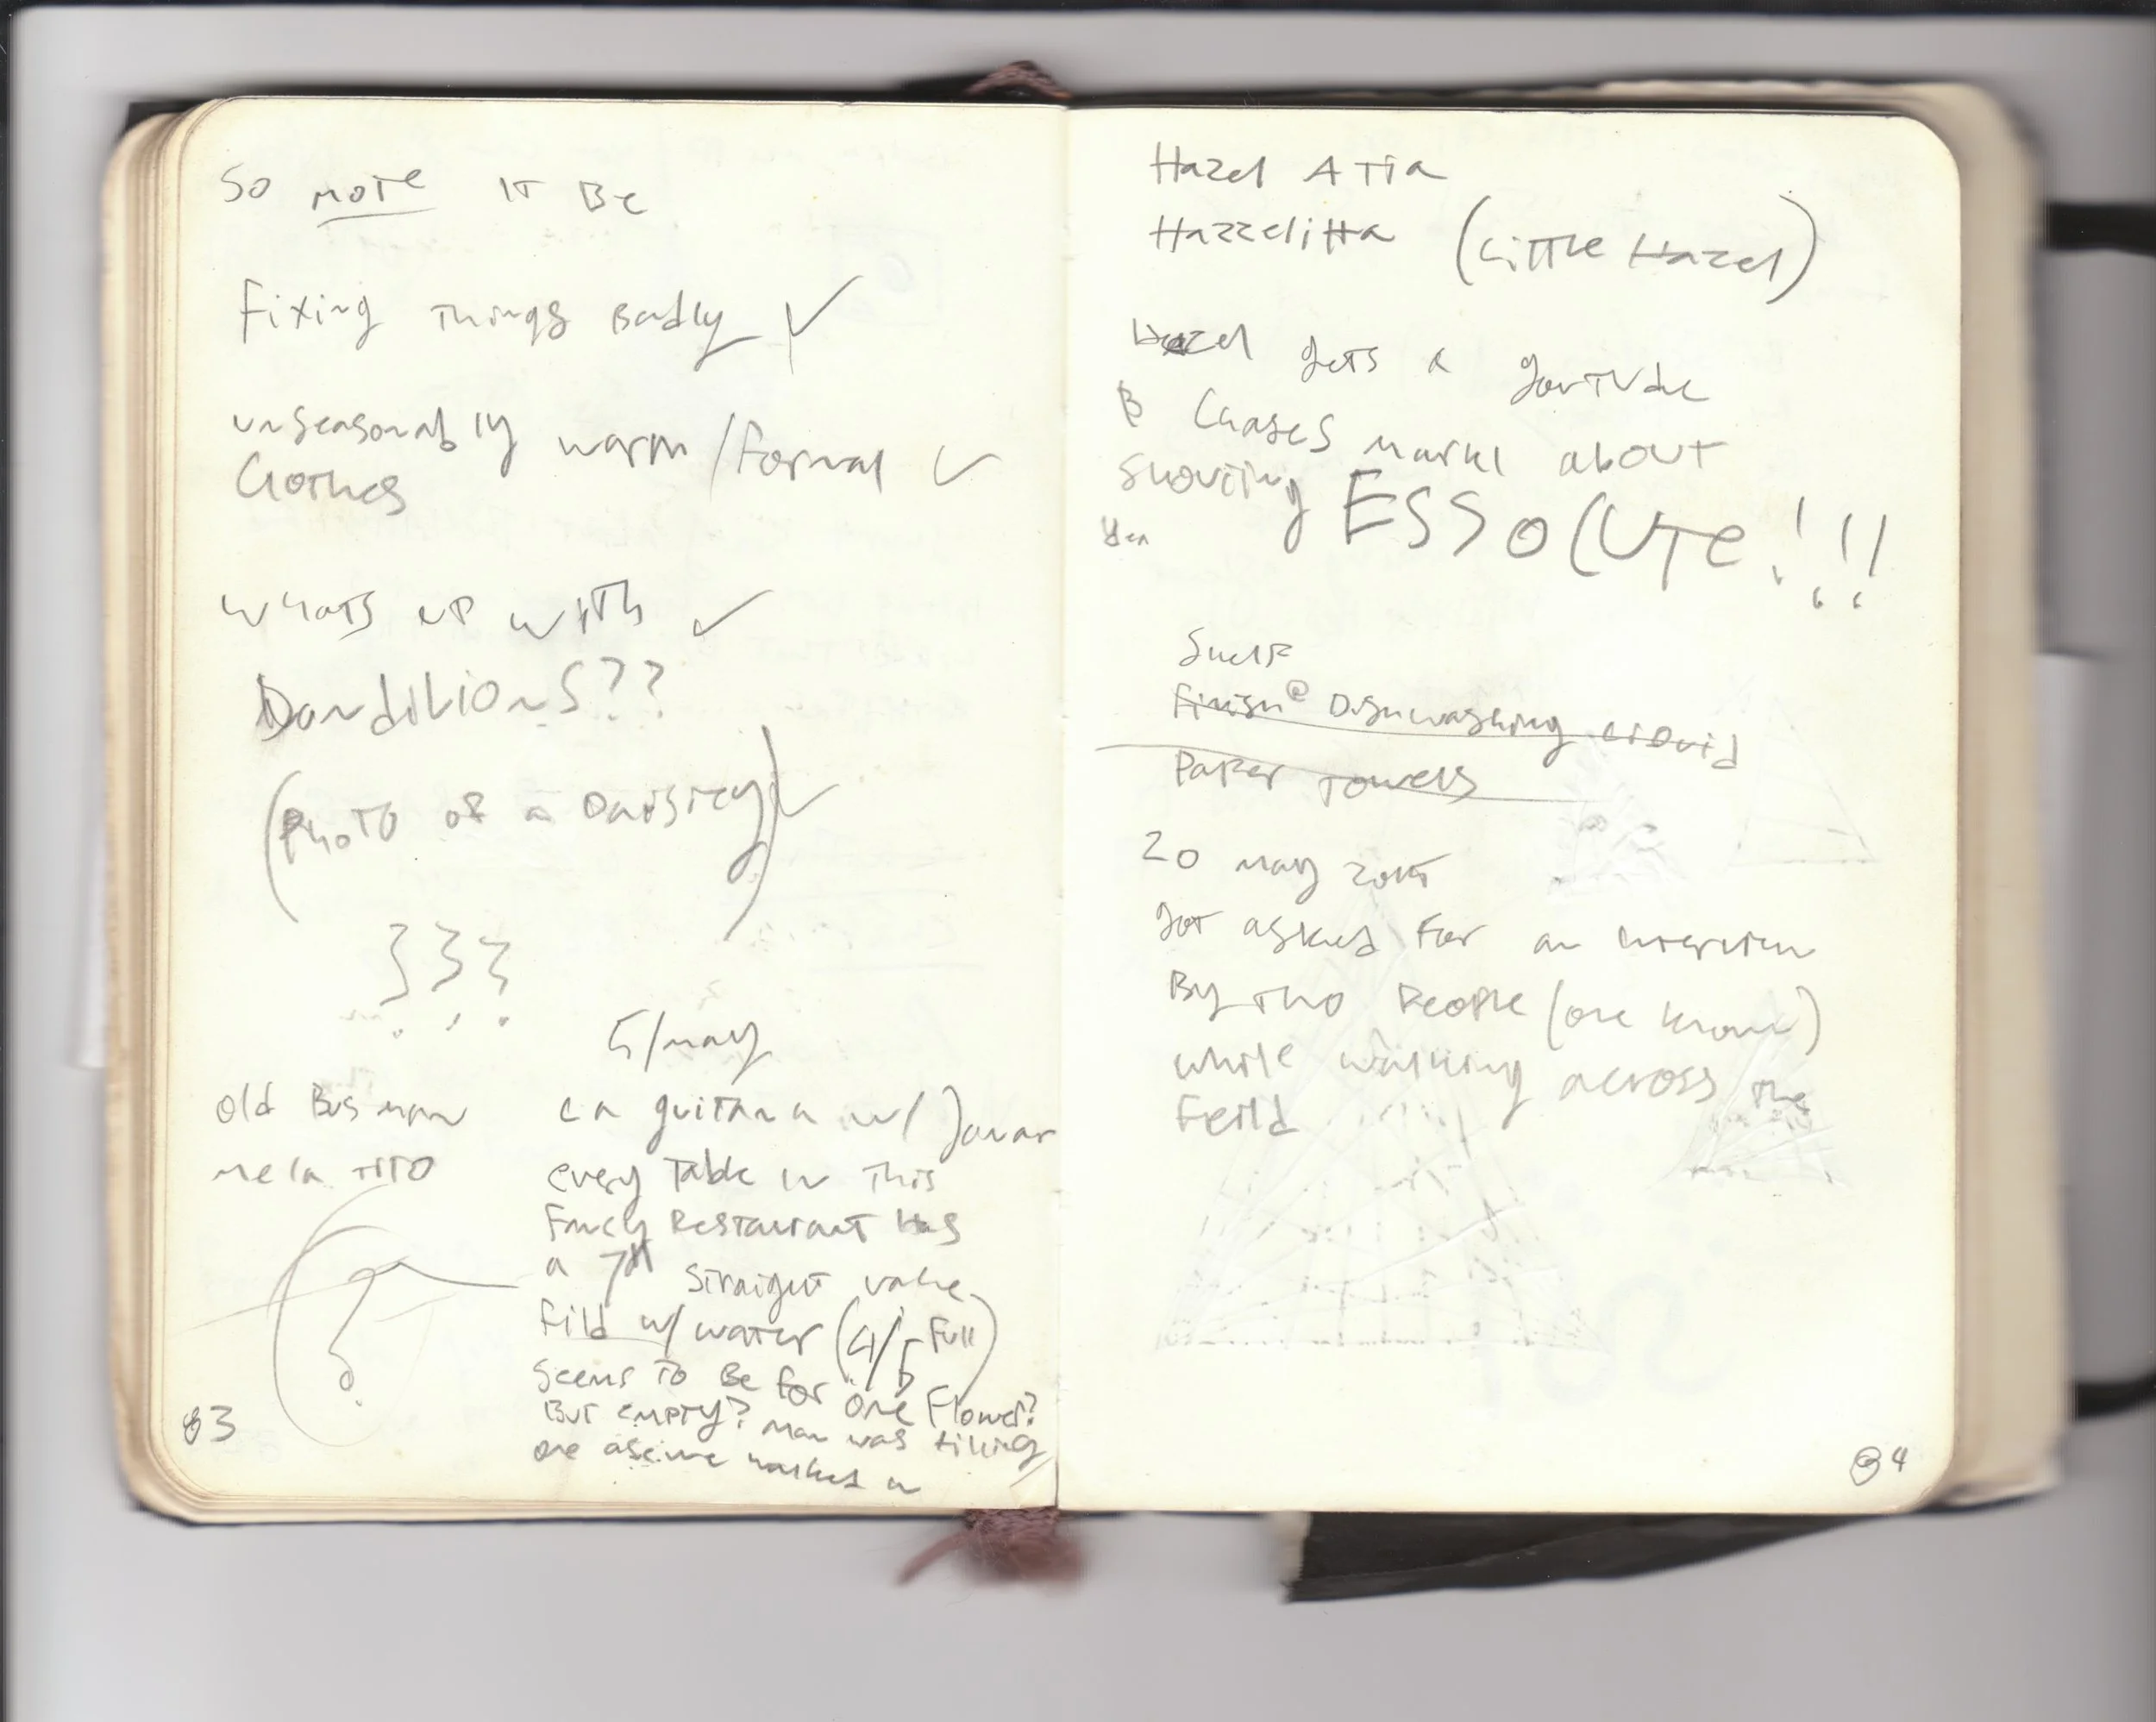 So mote it Be
Fixing Things Badly ✓
unseasonably warm / formal ✓
Clothes
whats up with ✓
Dandilions??
(Photo of a Daisiey) ✓
???
5/may
old Bus man
me la TITO
La guitara w/
every Table in This
Fancy Restaurant Has
a 7" straight
fild w/ water (4/5 Full)
Seems To Be for One Flower?
But empty? Man was filling
one as we walked in
83
Hazel ATIA
Hazzelitta (Little Hazel)
Hazel gets a
& Chases about
Shouting ESSOLUTE!!!
Finish® Dishwashing Liquid
Paper Towels
20 may 2015
got asked For an interview
By Two People (one known)
while walking across the
Feild
84